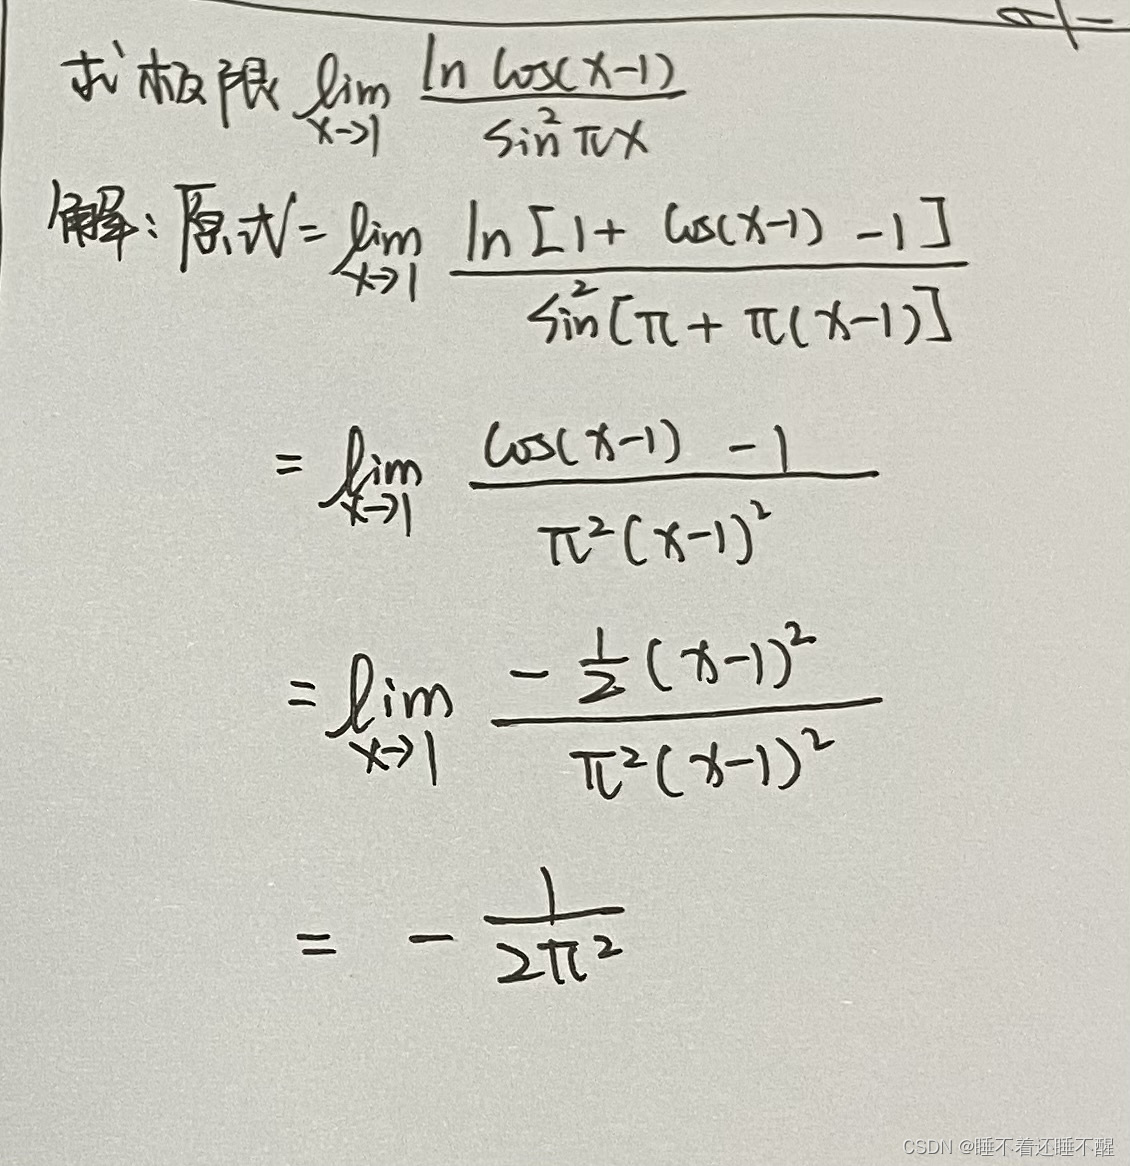 求极限 lim x→1 ln cos(x-1) / sin²πx
解：原式 = lim x→1 ln[1+ cos(x-1) -1] / sin²[π+π(x-1)]
= lim x→1 cos(x-1) -1 / π²(x-1)²
= lim x→1 -1/2 (x-1)² / π²(x-1)²
= - 1/2π²
CSDN @睡不着还睡不醒